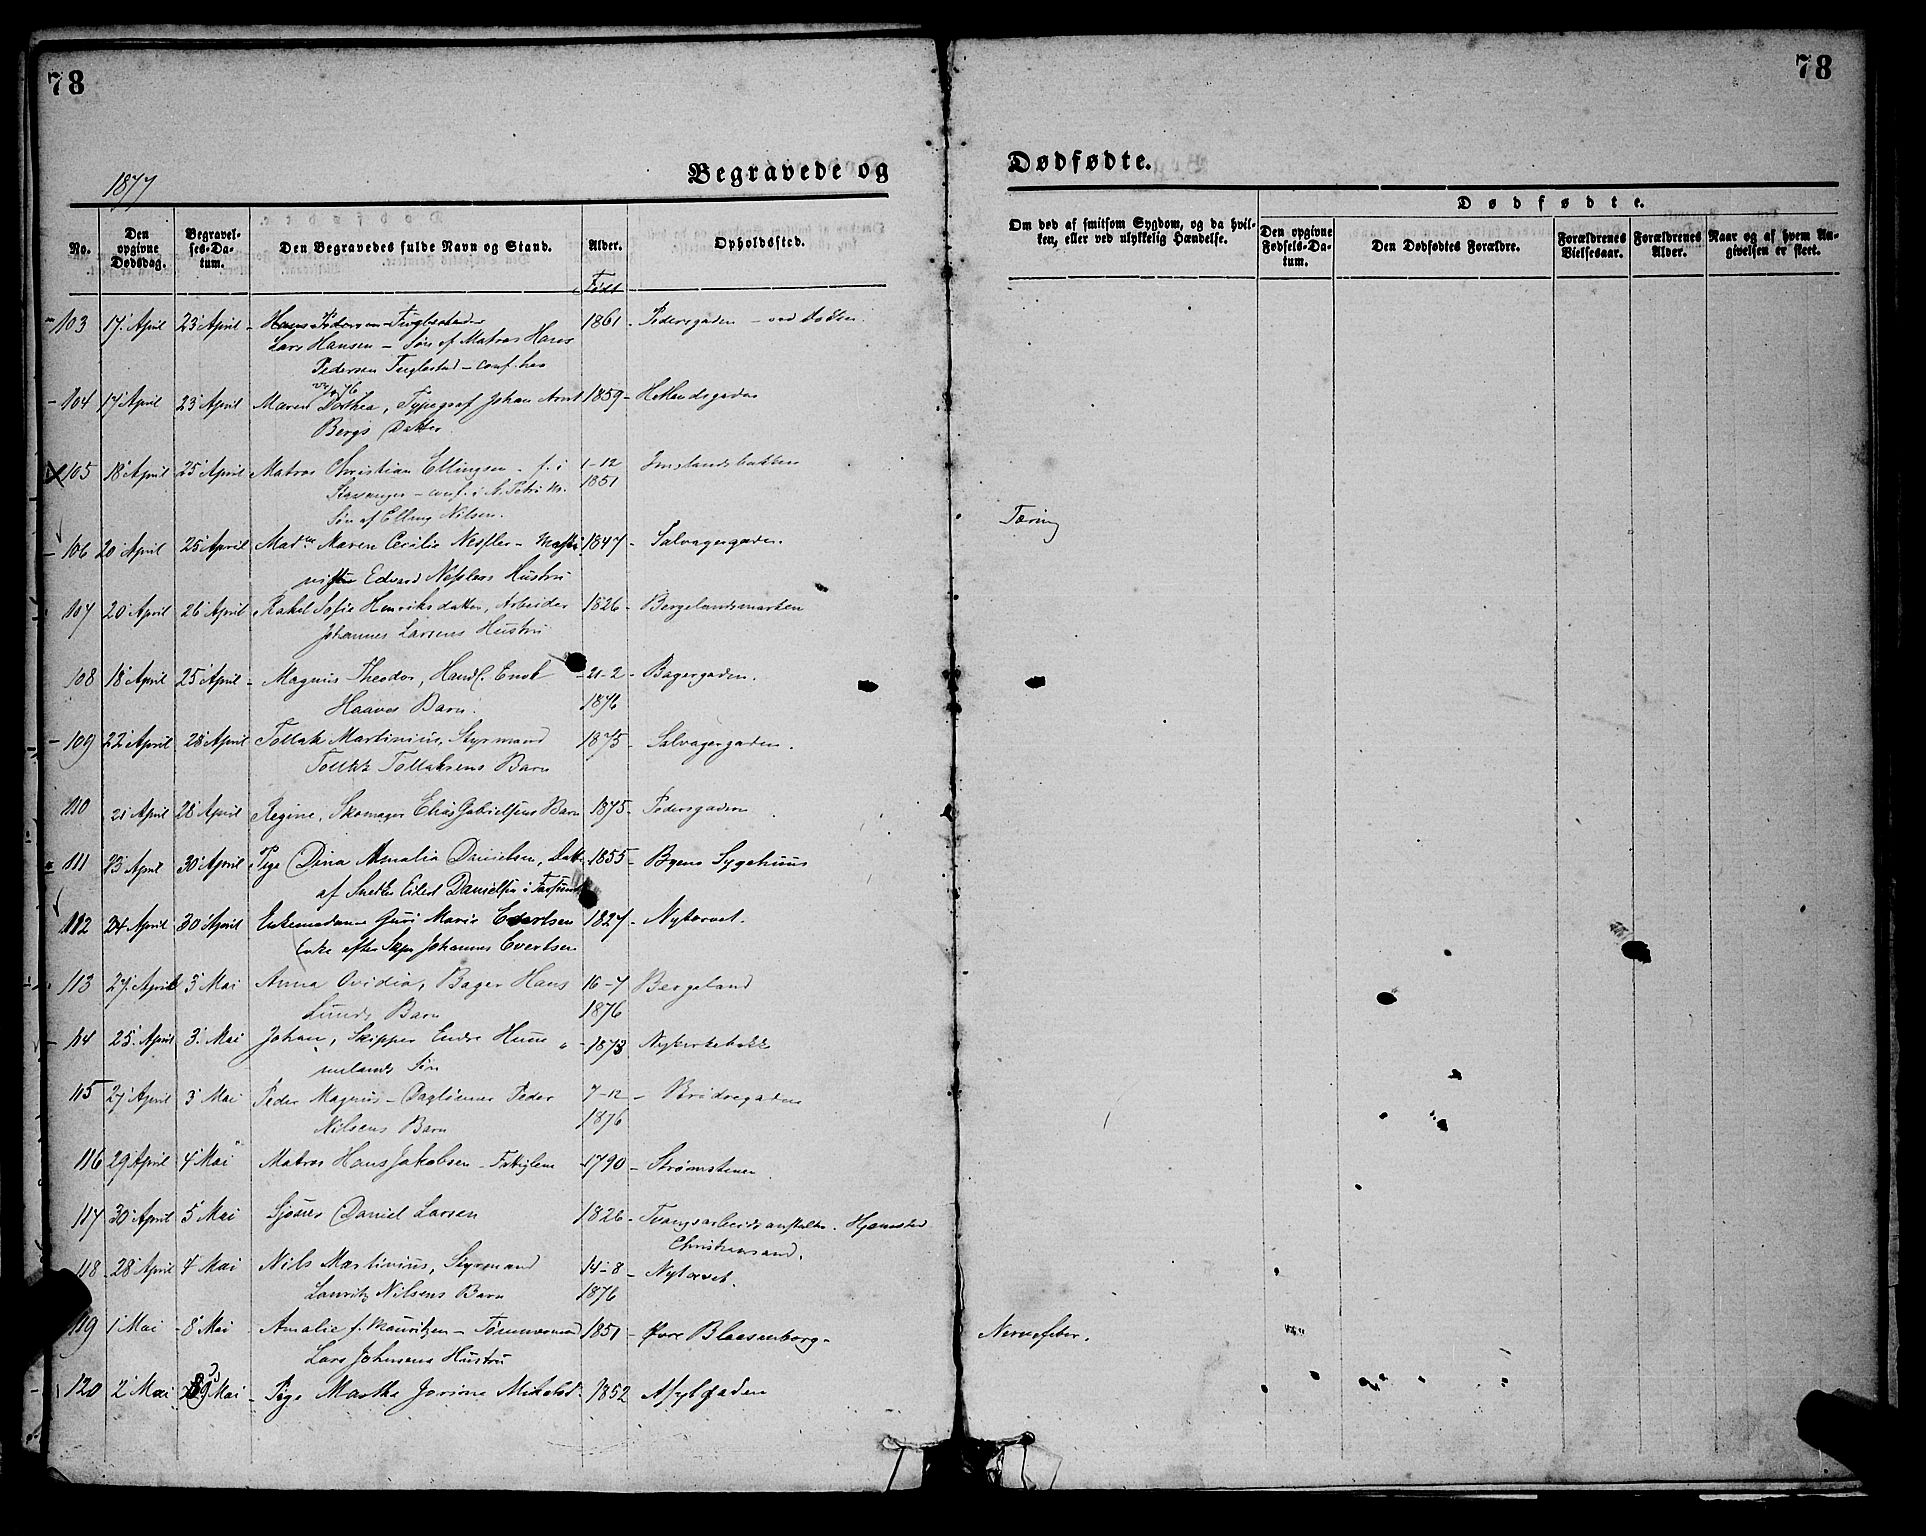 78
78
1877
Begravede og
Dødfødte.
No.
Den opgivne Dødsdag.
Begravelses-Datum.
Den Begravedes fulde Navn og Stand.
Alder.
Opholdssted.
Om død af smitsom Sygdom, og da hvilken, eller ved ulykkelig Hændelse.
Dødfødte.
Den opgivne Fødsels-Datum.
Den Dødfødtes Forældre.
Forældrenes Vielsesaar.
Forældrenes Alder.
Naar og af hvem Angivelsen er skeet.
Født
103 17 April 23 April Hans Pedersen Fuglestad 1861 Pedersgaden
Lars Hansen - Søn af Matros Hans
Pedersen Fuglestad - conf. hos
104 17 April 23 April Maren Dorthea, Typograf Johan Arnt 1859 Hetlandsgaden
Bergs Datter
105 18 April 25 April Matros Christian Ellingsen f. i 1-12 Imslandsbakken
Stavanger - conf. i St. Petri 1851
Søn af Elling Nilsen.
Tæring
106 20 April 25 April Mad. Maren Cecilie Nessler 1847 Salvagergaden.
Edvard Nesslers Hustru
107 20 April 26 April Rakel Sofie Henriksdatter, Arbeider 1826 Bergelandsmarken
Johannes Larsens Hustru
108 18 April 25 April Magnus Theodor, Handl. Enok 21-2 Bagergaden.
Haaves Barn. 1876
109 22 April 28 April Tollak Martinius, Styrmand 1875 Salvagergaden.
Tollak Tollaksens Barn
110 21 April 28 April Regine, Skomager Elias Gabrielsens Barn 1875 Pedersgaden
111 23 April 30 April Pige Dina Amalia Danielsen, Datt. 1855 Byens Sygehuus
af Eilert Danielsen i Farsund
112 24 April 30 April Enkemadame Guri Marie Evertsen 1827 Nytorvet.
Enke efter Skpr Johannes Evertsen
113 27 April 3 Mai Anna Ovidia, Bager Hans 16-7 Bergeland
Lunds Barn 1876
114 25 April 3 Mai Johan, Skipper Endre Hum 1873 Nykirkebakk
melands Søn
115 27 April 3 Mai Peder Magnus - Daglønner Peder 7-12 Brødregaden
Nilsens Barn 1876
116 29 April 4 Mai Matros Hans Jakobsen - Fatiglem 1790 Strømstenen
117 30 April 5 Mai Sjøues Daniel Larsen 1826 Tvangsarbeidsanstalten.
Christiansand.
118 28 April 4 Mai Nils Martinius, Styrmand 14-8 Nytorvet.
Lauritz Nilsens Barn 1876
119 1 Mai 8 Mai Amalie f. Mauritzen - Tømmermand 1851 Øvre Blaasenborg Nervefeber.
Lars Johnsens Hustru
120 2 Mai Mai Pige Marthe Jorine 1852 Asylgaden